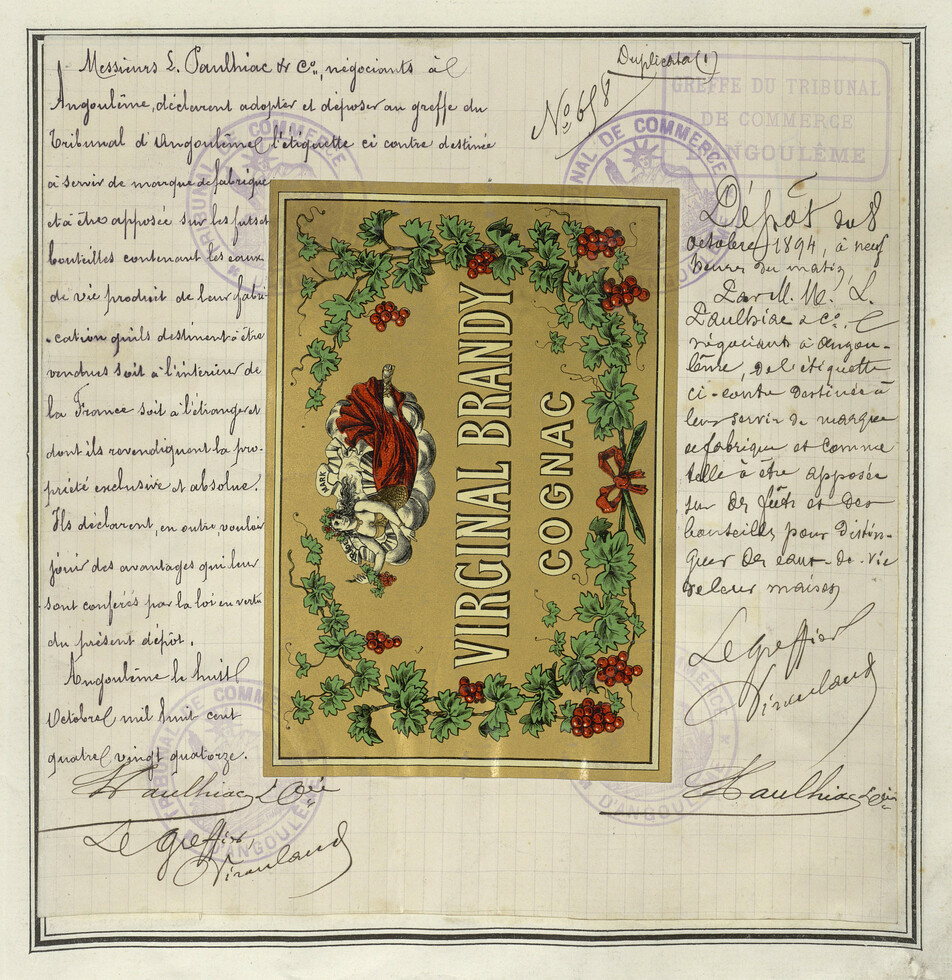 Messieurs L. Paulhiac & Co., négociants à
Angoulême, déclarent adopter et déposer au greffe du
Tribunal d'Angoulême l'étiquette ci contre destinée
à servir de marque de fabrique
et à être apposée sur les futs et
bouteilles contenant les eaux
de vie produit de leur fabri
-cation qu'ils destinent à être
vendues soit à l'intérieur de
la France soit à l'étranger et
dont ils revendiquent la pro-
priété exclusive et absolue.
Ils déclarent, en outre, vouloir
jouir des avantages qui leur
sont conférés par la loi en vertu
du présent dépôt.
Angoulême le huit
Octobre mil huit cent
quatre vingt quatorze.
Paulhiac & Cie
Le Greffier
Duplicata (1)
No. 658
GREFFE DU TRIBUNAL
DE COMMERCE
D'ANGOULÊME
TRIBUNAL DE COMMERCE
D'ANGOULÊME
VIRGINAL BRANDY
COGNAC
Dépôt du 8
octobre 1894, à neuf
heures du matin,
Par M.M. L.
Paulhiac & Co.
négociant à Angou-
lême, de l'étiquette
ci-contre destinée à
leur servir de marque
de fabrique et comme
telle à être apposée
sur des fûts et des
bouteilles pour distin-
guer des eaux-de-vie
de leur maison,
Le Greffier
Paulhiac & Cie